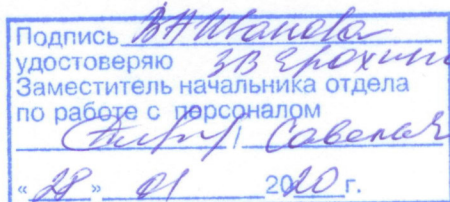 Подпись В А Иванова
удостоверяю З В Ерохин
Заместитель начальника отдела
по работе с персоналом
/
« 28 » 01 2020 г.